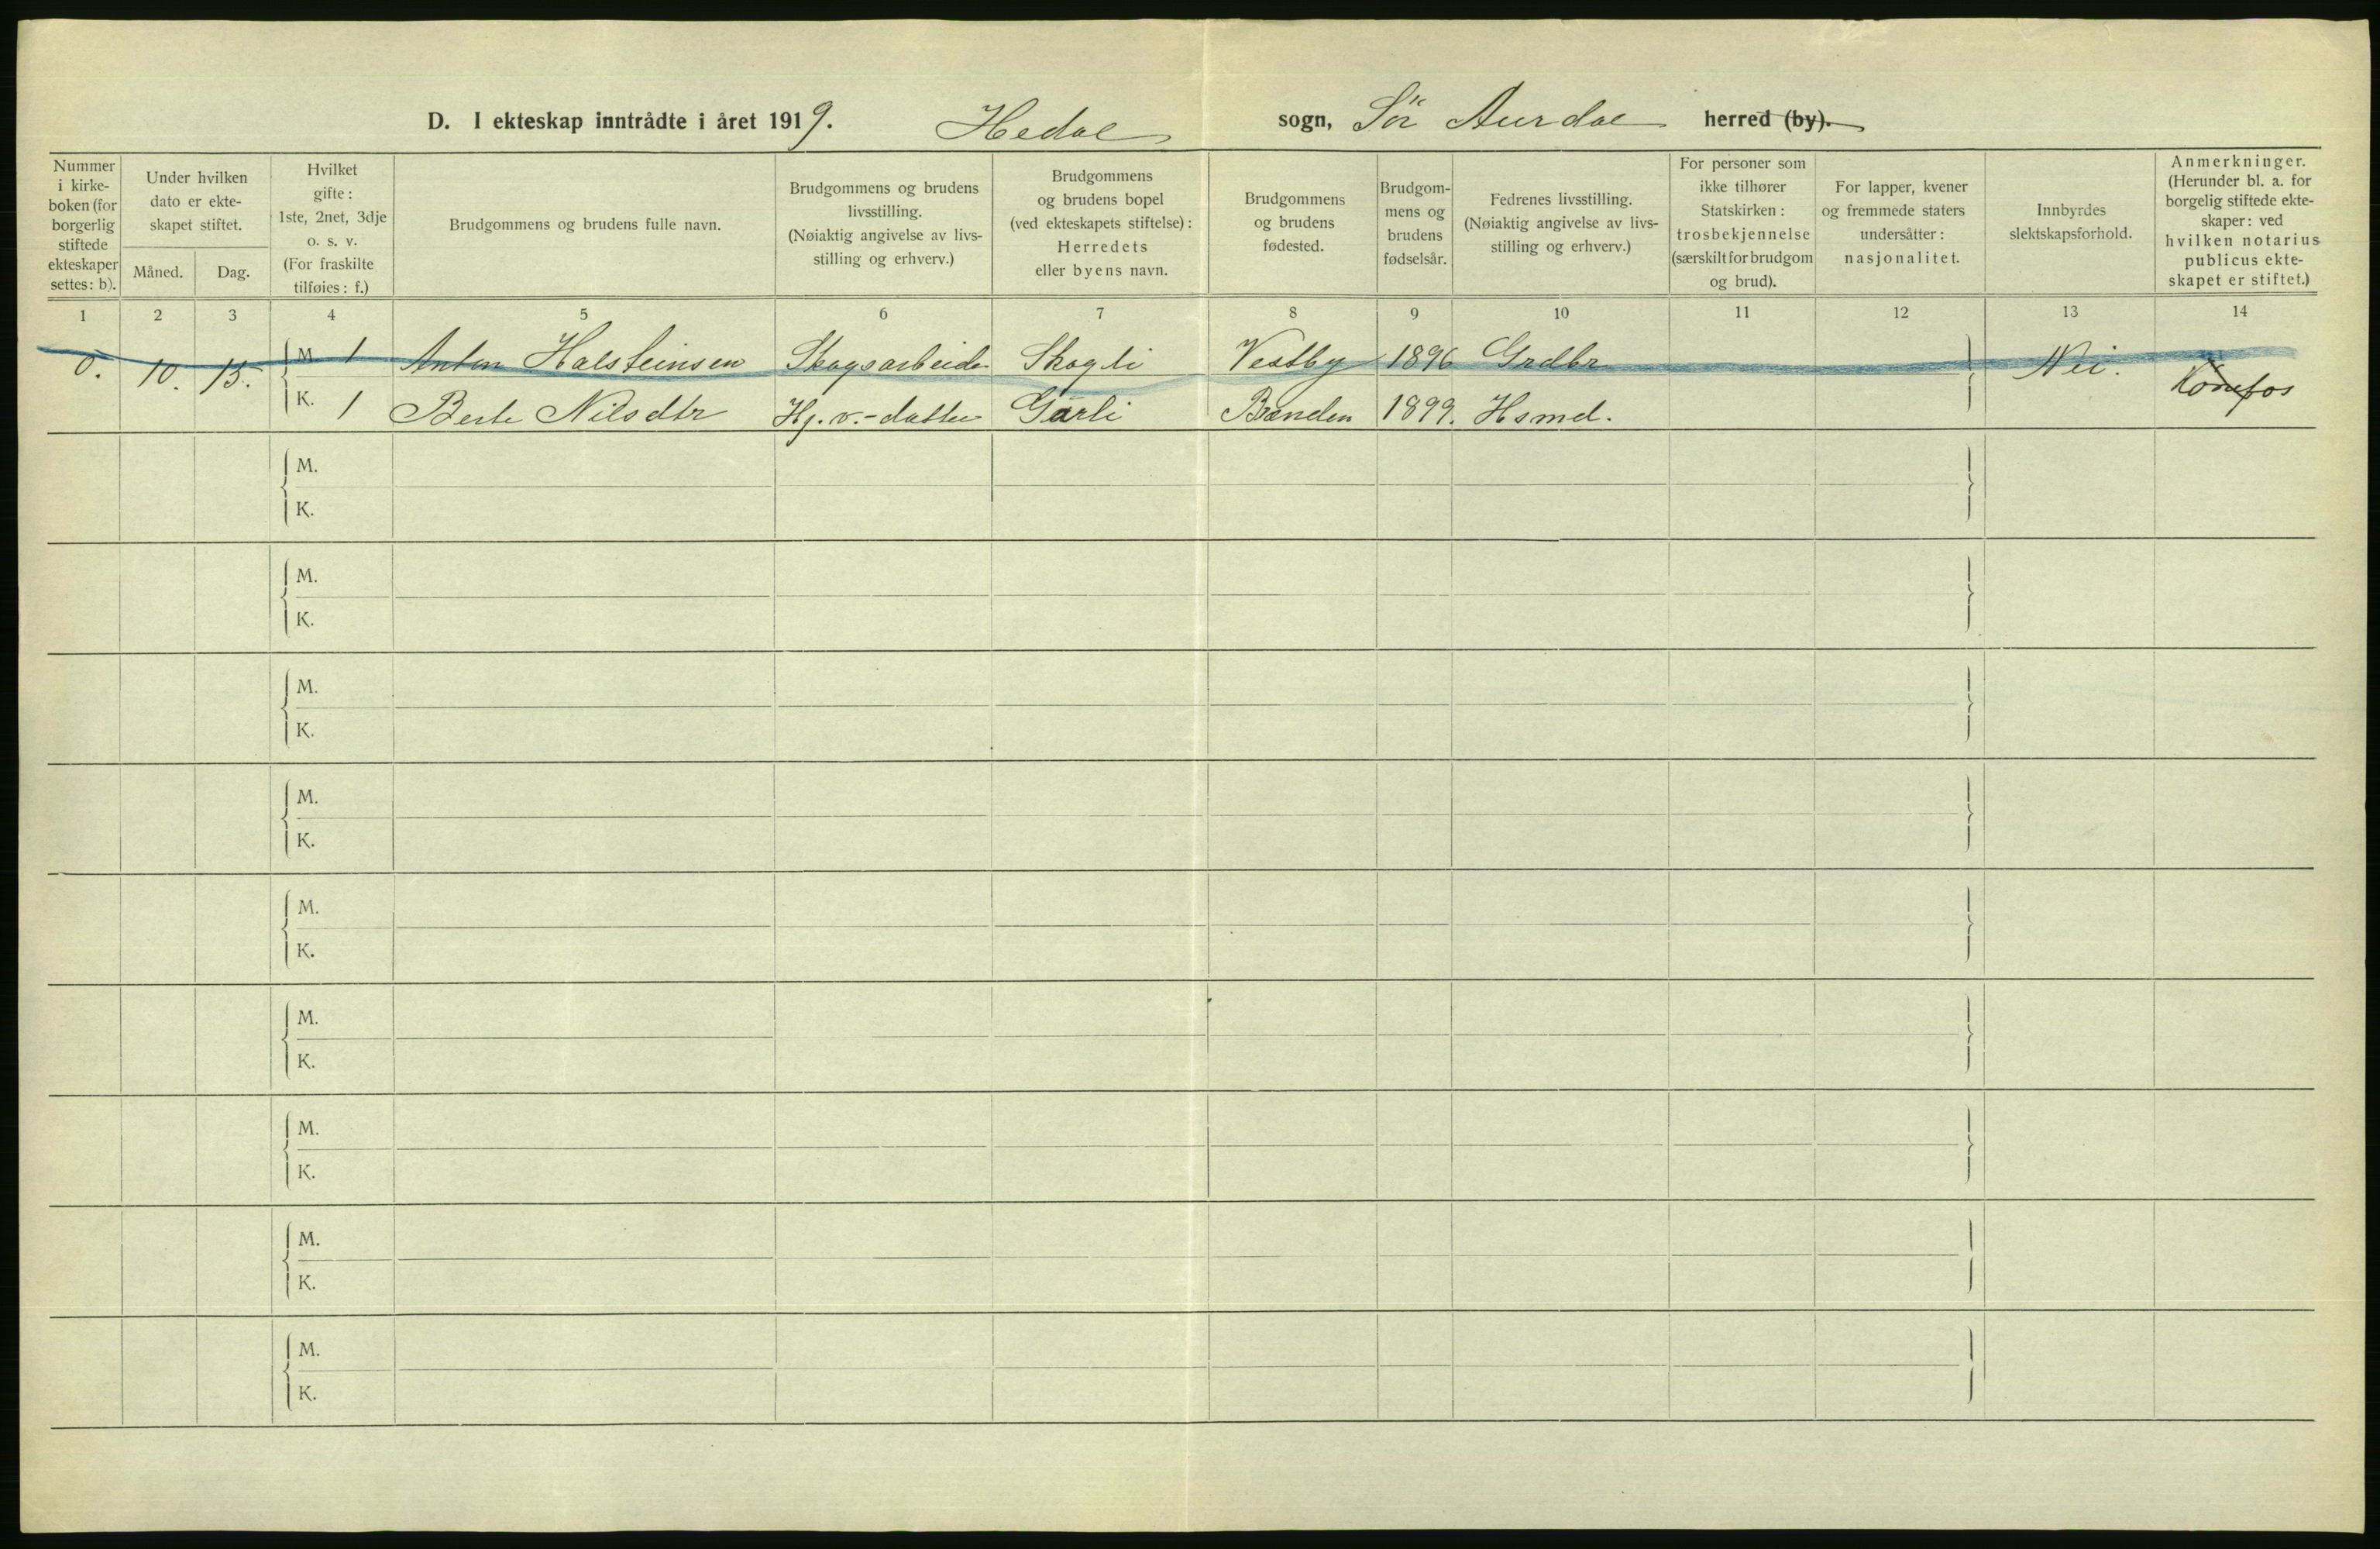 D. I ekteskap inntrådte i året 1919. Hedal sogn, Sör Aurdal herred (by).
Nummer i kirke- boken (for borgerlig stiftede ekteskaper settes: b).
Under hvilken dato er ekte- skapet stiftet.
Måned. Dag.
Hvilket gifte: 1ste, 2net, 3dje o. s. v. (For fraskilte tilføies: f.)
Brudgommens og brudens fulle navn.
Brudgommens og brudens livsstilling. (Nøiaktig angivelse av livs- stilling og erhverv.)
Brudgommens og brudens bopel (ved ekteskapets stiftelse): Herredets eller byens navn.
Brudgommens og brudens fødested.
Brudgom- mens og brudens fødselsår.
Fedrenes livsstilling. (Nøiaktig angivelse av livs- stilling og erhverv.)
For personer som ikke tilhører Statskirken: trosbekjennelse (særskilt for brudgom og brud).
For lapper, kvener og fremmede staters undersåtter: nasjonalitet.
Innbyrdes slektskapsforhold.
Anmerkninger. (Herunder bl. a. for borgelig stiftede ekte- skaper: ved hvilken notarius publicus ekte- skapet er stiftet.)
1 2 3 4 5 6 7 8 9 10 11 12 13 14
0. 10. 15. M. 1 Anton Halsteinsen Skogsarbeider Skogli Vestby 1896 Grdbr Nei.
K. 1 Berte Nilsdtr Hj. v.-datter Gårli Brænden 1899. Hsmd. Hönefos
M.
K.
M.
K.
M.
K.
M.
K.
M.
K.
M.
K.
M.
K.
M.
K.
M.
K.